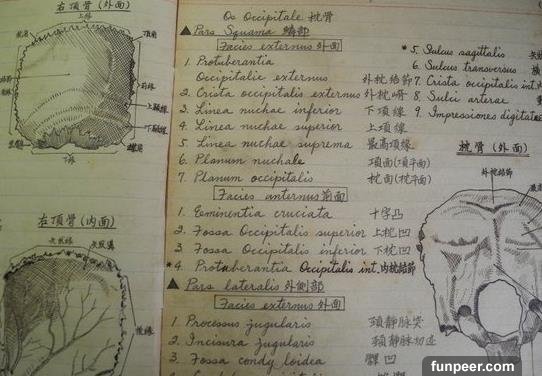 右頂骨(外面)
上緣
頂角
前緣
上顳線
下顳線
下緣
右頂骨(内面)
矢狀緣
矢狀溝
後緣
Os Occipitale 枕骨
▲ Pars Squama 鱗部
Facies externus 外面
1. Protuberantia
Occipitalie externus 外枕結節
2. Crista occipitalis externus 外枕嵴
3. Linea nuchae inferior 下項線
4. Linea nuchae superior 上項線
5. Linea nuchae suprema 最高項線
6. Planum nuchale 項面(項平面)
7. Planum occipitalis 枕面(枕平面)
Facies anternus 前面
1. Eminentia cruciata 十字凸
2. Fossa Occipitalis superior 上枕凹
3. Fossa Occipitalis inferior 下枕凹
*4 Protuberantia Occipitalis int. 内枕結節
▲ Pars lateralis 外側部
Facies externus 外面
1. Processus jugularis 頚静脉突
2. Incisura jugularis 頚静脉切迹
3. Fossa condyloidea 髁凹
*5. Sulcus sagittalis
6. Sulcus transversus 橫
7. Crista occipitalis int.
8. Sulci arterae
9. Impressiones digitatae
枕骨(外面)
外枕結節
funpeer.com